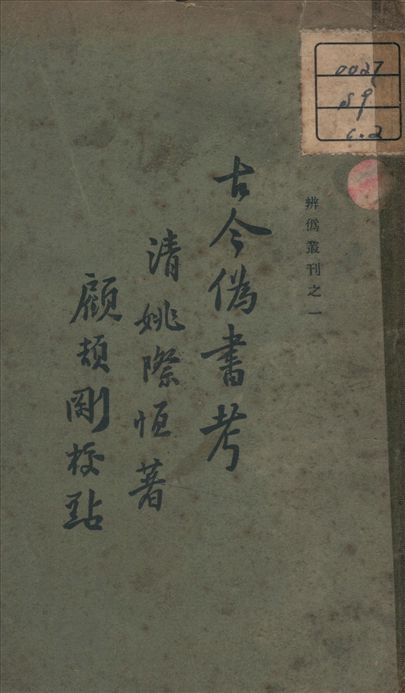 辨偽叢刊之一
古今偽書考
清姚際恆著
顧頡剛校點
0027
c.2